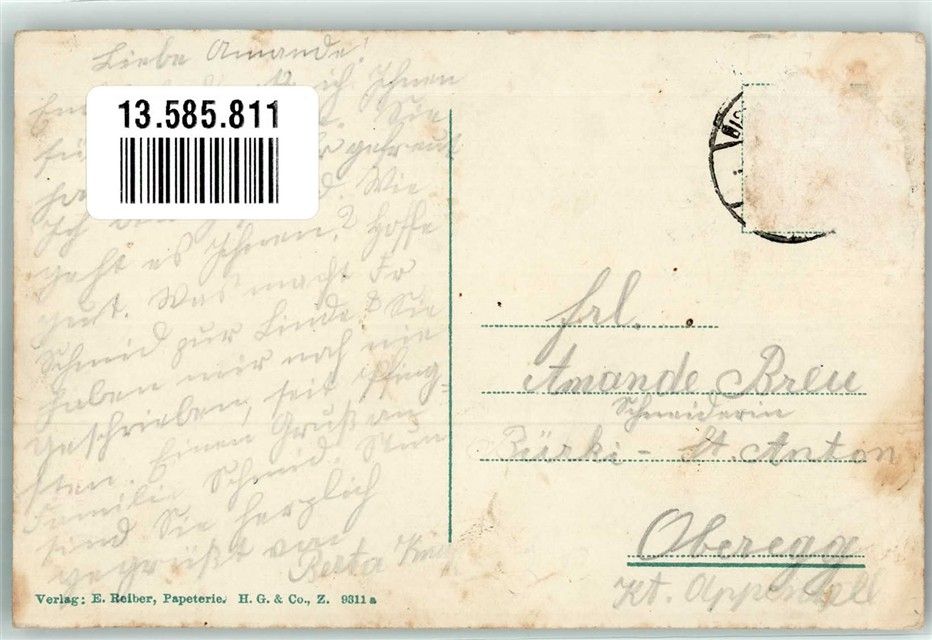 Liebe Amande!
ich Ihnen
Sie
gefreut
Wie
geht es Ihnen? Hoffe
gut. Was macht Fr
Schmid zur Linde? Sie
haben mir noch nie
geschrieben, seit Pfing-
sten. Einen Gruß an
Familie Schmid. Nun
sind Sie herzlich
gegrüßt von
Berta
13.585.811
Frl.
Amande Breu
Schneiderin
Bürki - St. Anton
Oberegg
Kt. Appenzell
Verlag: E. Reiber, Papeterie. H. G. & Co., Z. 9311 a